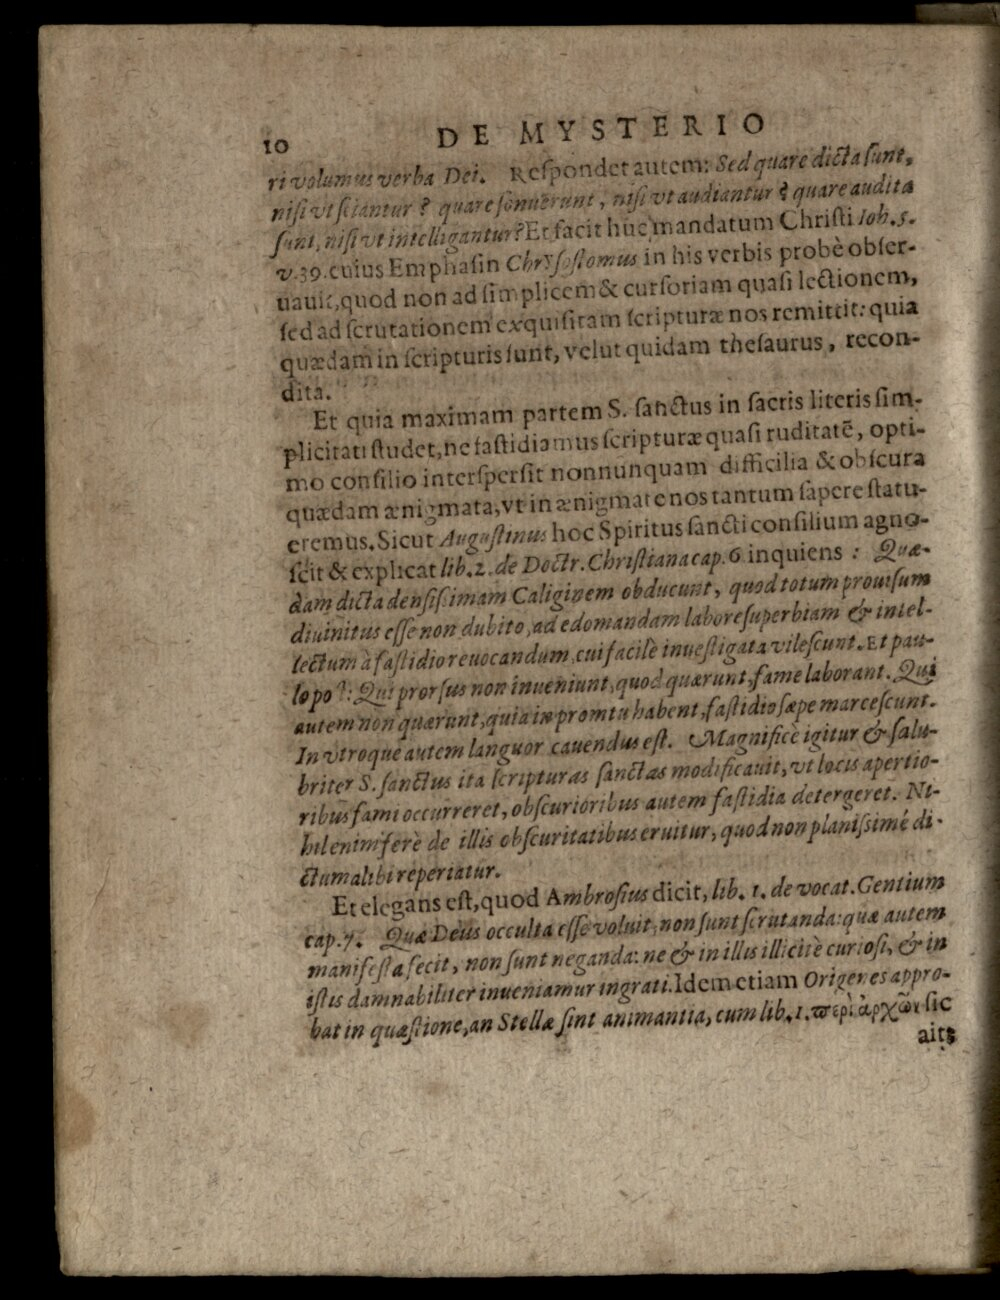 10 DE MYSTERIO
ri volumus verba Dei. Respondet autem: Sed quare dicta ſunt,
niſi vt ſciantur? quare ſonuerunt, niſi vt audiantur? quare audita
ſunt, niſi vt intelligantur? Et facit huc mandatum Chriſti Ioh. 5.
v. 39. cuius Emphaſin Chryſoſtomus in his verbis probè obſer-
uauit, quod non ad ſimplicem & curſoriam quaſi lectionem,
ſed ad ſcrutationem exquiſitam ſcripturæ nos remittit: quia
quædam in ſcripturis ſunt, velut quidam theſaurus, recon-
dita.
Et quia maximam partem S. ſanctus in ſacris literis ſim-
plicitati ſtudet, ne faſtidiamus ſcripturæ quaſi ruditatē, opti-
mo conſilio interſperſit nonnunquam difficilia & obſcura
quædam ænigmata, vt in ænigmate nos tantum ſapere ſtatu-
eremus. Sicut Auguſtinus hoc Spiritus ſancti conſilium agno-
ſcit & explicat lib. 2. de Doctr. Chriſtiana cap. 6 inquiens: Quæ-
dam dicta denſiſsimam Caliginem obducunt, quod totum prouiſum
diuinitus eſſe non dubito, ad edomandam labore ſuperbiam & intel-
lectum à faſtidio reuocandum, cui facilè inueſtigata vileſcunt. Et pau-
lo pòſt: Qui prorſus non inueniunt, quod quærunt, fame laborant. Qui
autem non quærunt, quia in promtu habent, faſtidio ſæpe marceſcunt.
In vtroque autem languor cauendus eſt. Magnificè igitur & ſalu-
briter S. ſanctus ita ſcripturas ſanctas modificauit, vt locis apertio-
ribus fami occurreret, obſcurioribus autem faſtidia detergeret. Ni-
hil enim ferè de illis obſcuritatibus eruitur, quod non planiſsimè di-
ctum alibi reperiatur.
Et elegans eſt, quod Ambroſius dicit, lib. 1. de vocat. Gentium
cap. 7. Quæ Deus occulta eſſe voluit, non ſunt ſcrutanda: quæ autem
manifeſta fecit, non ſunt neganda: ne & in illis illicitè curioſi, & in
iſtis damnabiliter inueniamur ingrati. Idem etiam Origenes appro-
bat in quæſtione, an Stellæ ſint animantia, cum lib. 1. περὶ ἀρχῶν ſic
ait: